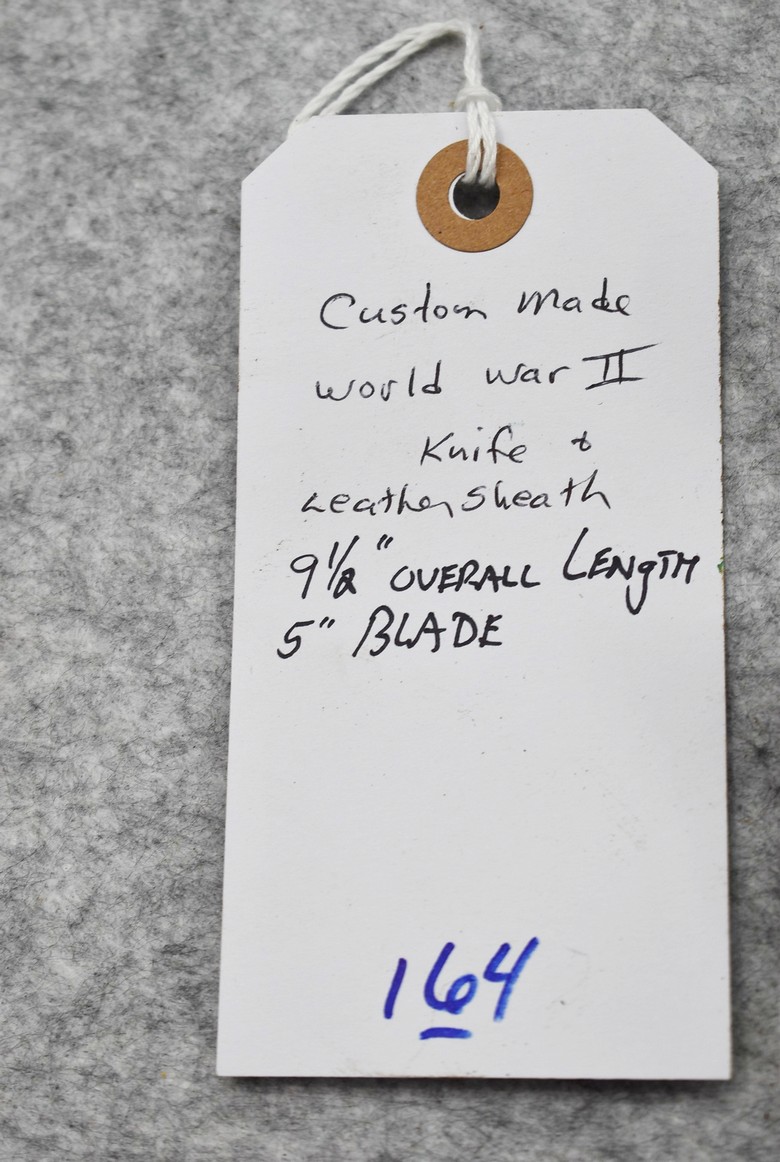 Custom made
world war II
Knife &
Leather sheath
9 1/2" OVERALL LENgTH
5" BLADE
164